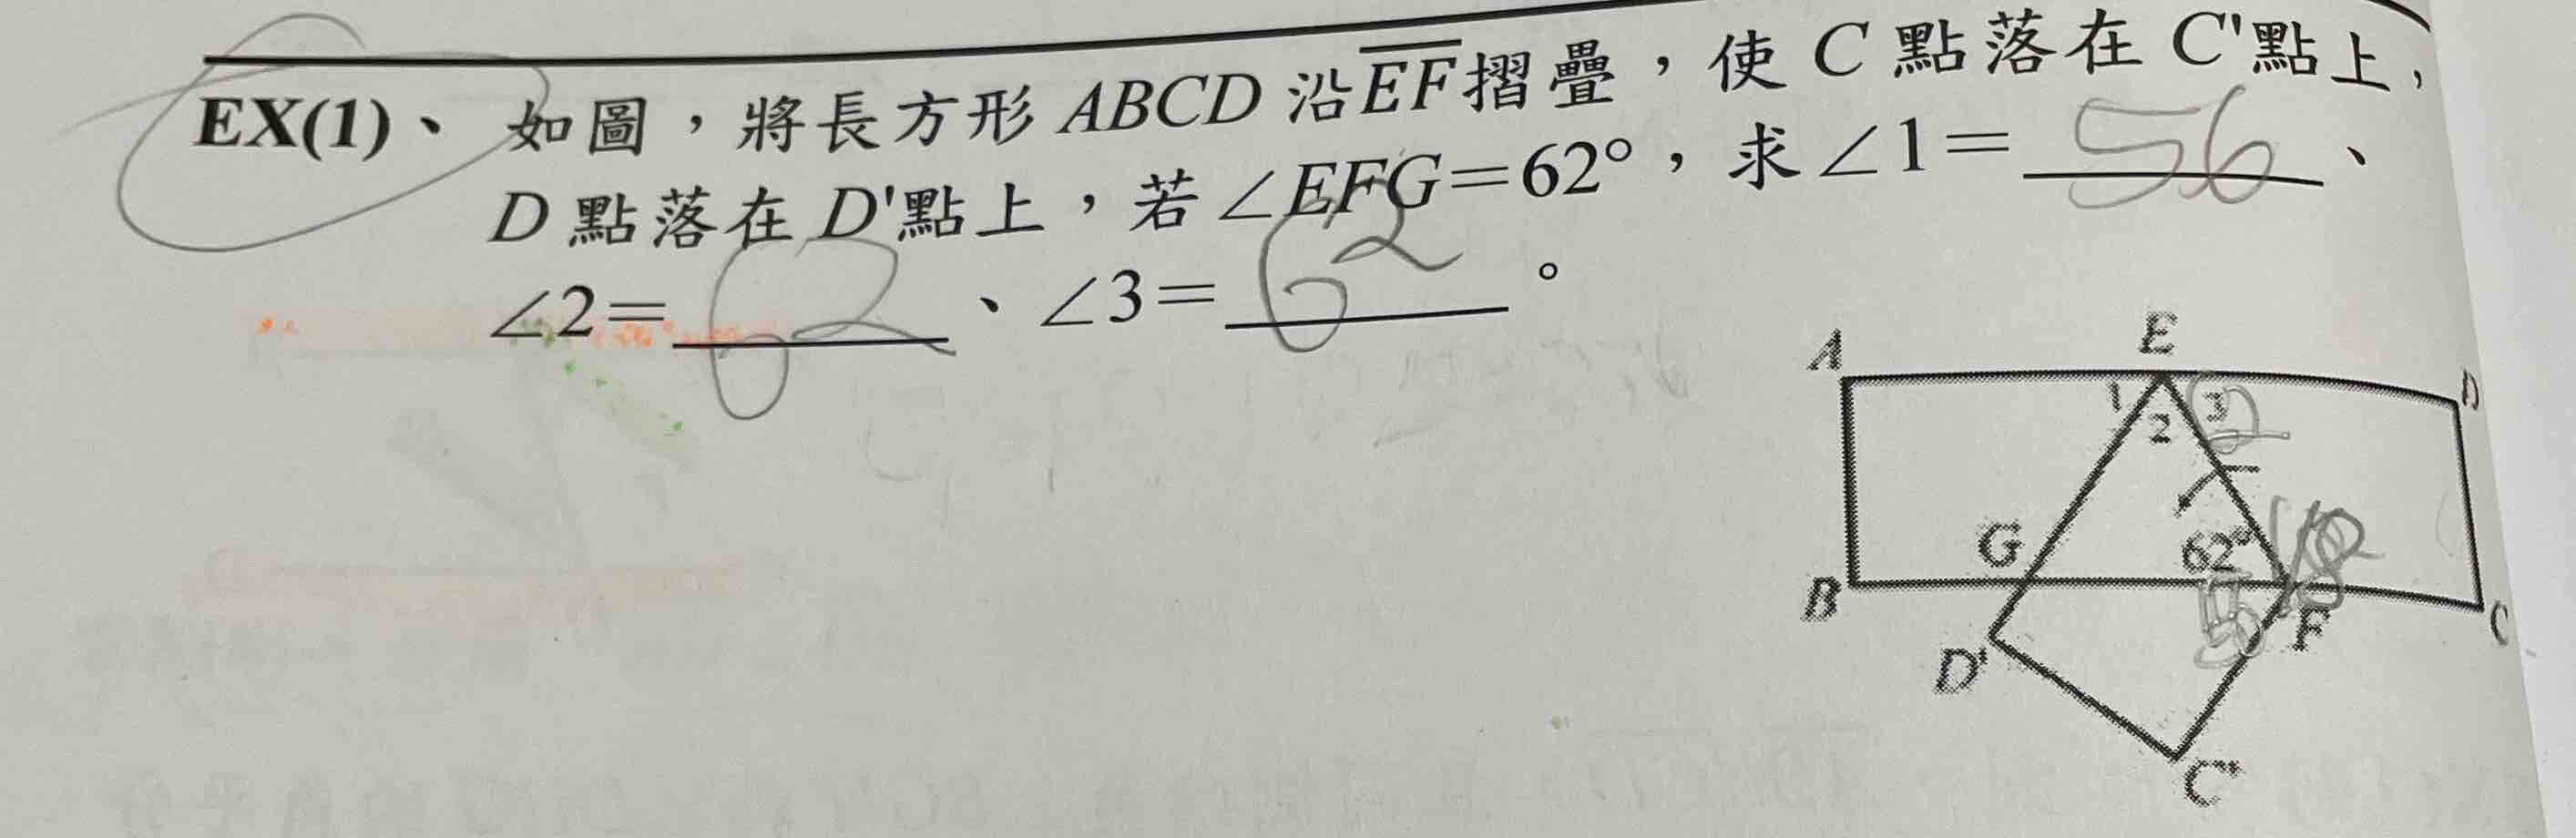 EX(1)、 如圖，將長方形 ABCD 沿EF摺疊，使 C 點落在 C'點上，
D 點落在 D'點上，若∠EFG=62°，求∠1= 56 、
∠2= 62 、∠3= 62 。
E
A
D
1
3
2
G
62°
B
F
C
D'
C'